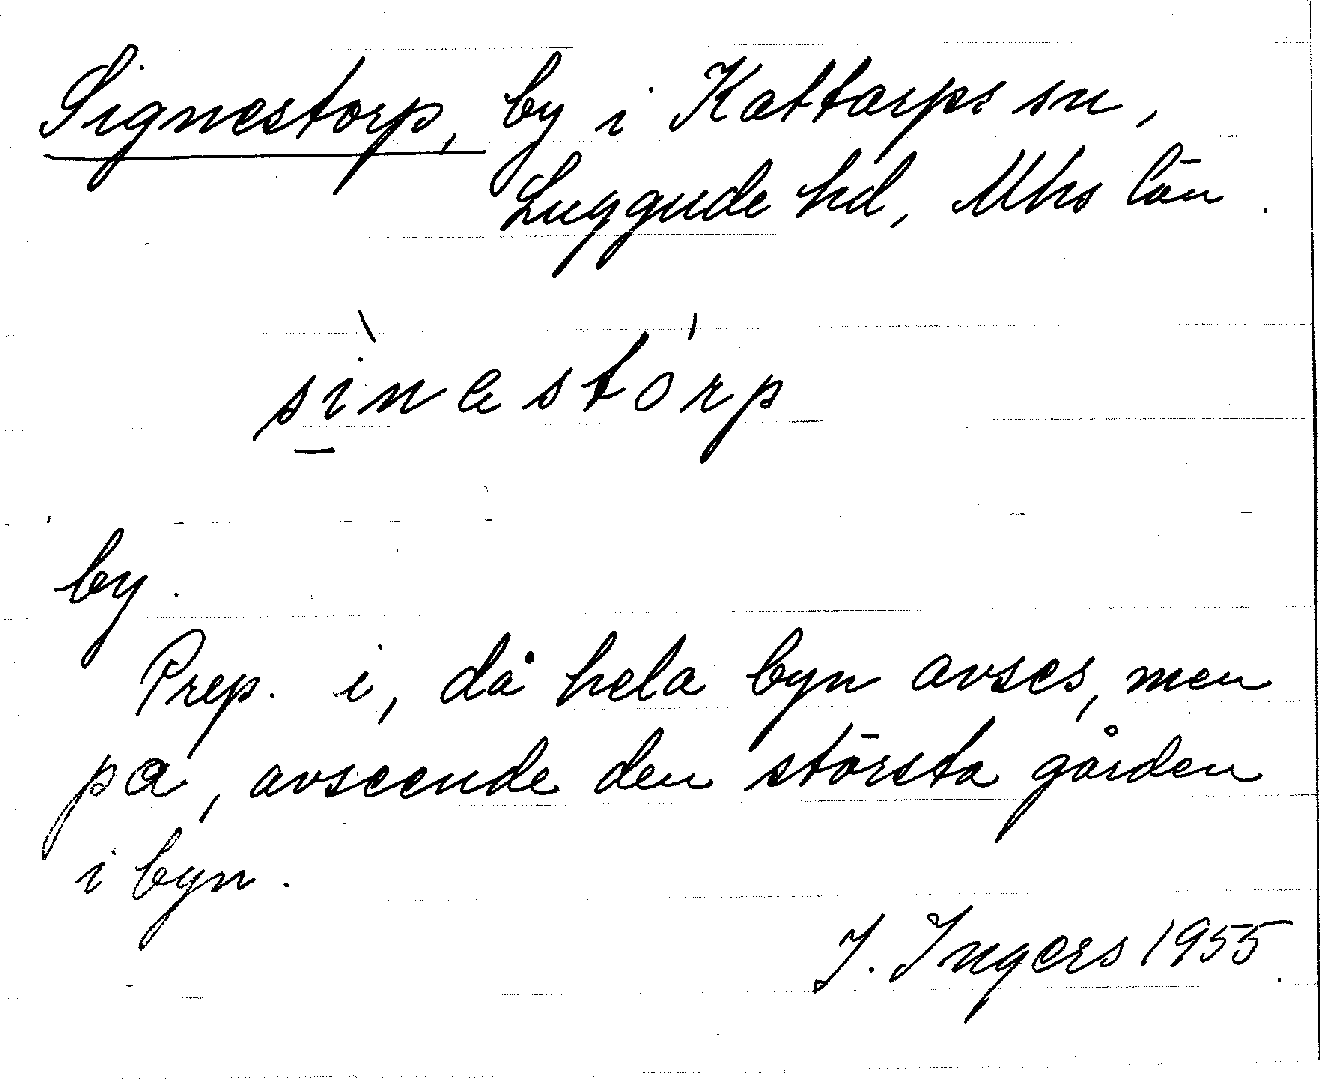 Signestorp, by i Kattarps sn,
Luggude hd, Mhs län.
sìnastórp
by.
Prep. i, då hela byn avses, men
på, avseende den största gården
i byn.
I. Ingers 1955.